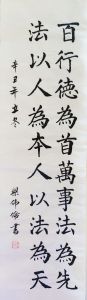 百行德為首萬事法為先
法以人為本人以法為天
辛丑年立冬
書